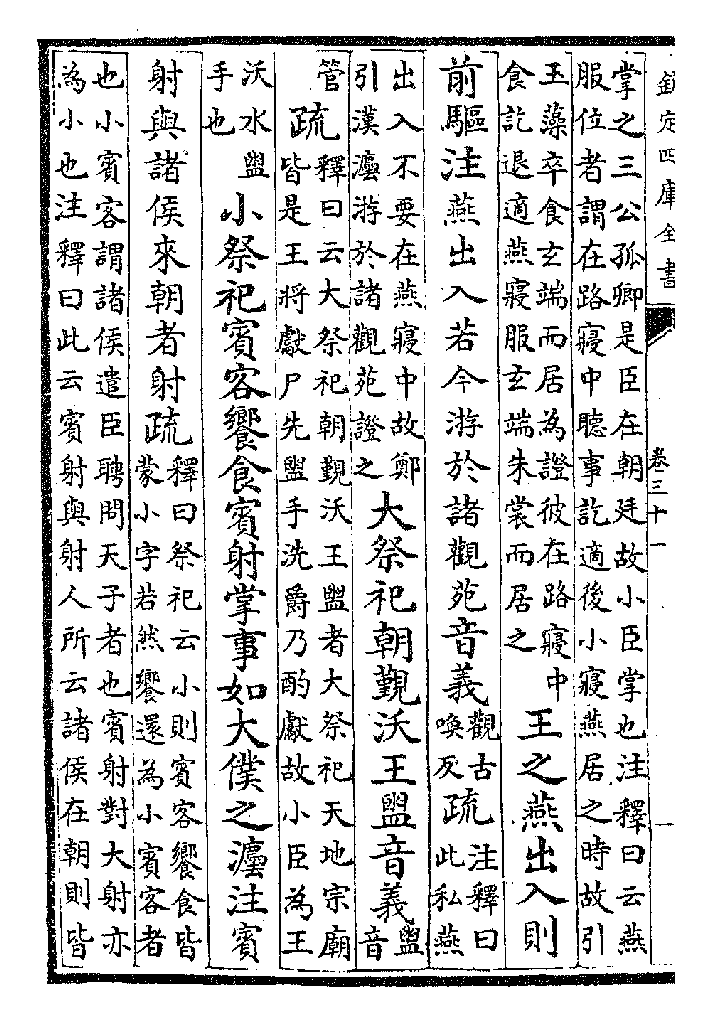 欽定四庫全書 卷三十一 一
掌之三公孤卿是臣在朝廷故小臣掌也注釋曰云燕
服位者謂在路寢中聽事訖適後小寢燕居之時故引
玉藻卒食玄端而居為證彼在路寢中
食訖退適燕寢服玄端朱裳而居之
王之燕出入則
前驅注燕出入若今游於諸觀苑音義
觀古
喚反
疏
注釋曰
此私燕
出入不要在燕寢中故鄭
引漢灋游於諸觀苑證之
大祭祀朝覲沃王盥音義
盥
音
管
疏
釋曰云大祭祀朝覲沃王盥者大祭祀天地宗廟
皆是王將獻尸先盥手洗爵乃酌獻故小臣為王
沃水盥
手也
小祭祀賓客饗食賓射掌事如大僕之灋注賓
射與諸侯來朝者射疏
釋曰祭祀云小則賓客饗食皆
蒙小字若然饗還為小賓客者
也小賓客謂諸侯遣臣聘問天子者也賓射對大射亦
為小也注釋曰此云賓射與射人所云諸侯在朝則皆